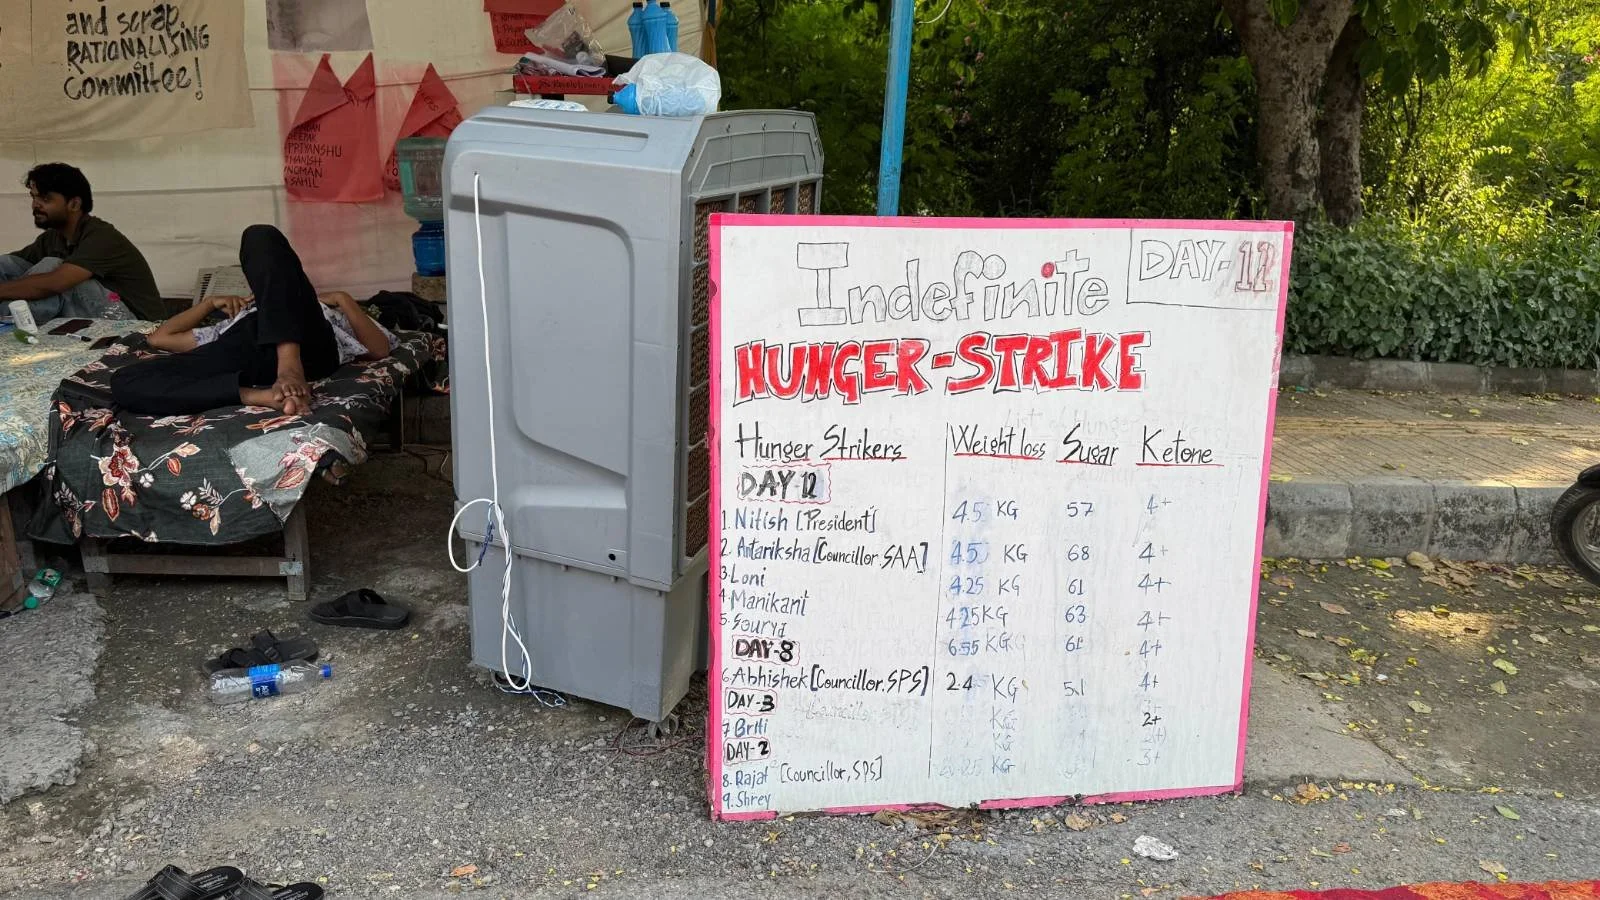 and scrap
RATIONALISING
Committee!
PRIYANSHU
MANISH
NOMAN
SAHIL
Indefinite
DAY-12
HUNGER-STRIKE
Hunger Strikers Weight loss Sugar Ketone
DAY 12
1. Nitish [President] 4.5 KG 57 4+
2. Antariksha [Councillor. SAA] 4.5 KG 68 4+
3. Loni 4.25 KG 61 4+
4. Manikant 4.25 KG 63 4+
5. Sourya 6.55 KG 61 4+
DAY-8
6. Abhishek [Councillor. SPS] 2.4 KG 51 4+
DAY-3
7 Briti KG 2+
DAY-2 KG
8. Rajat [Councillor, SPS] KG 3+
9. Shrey